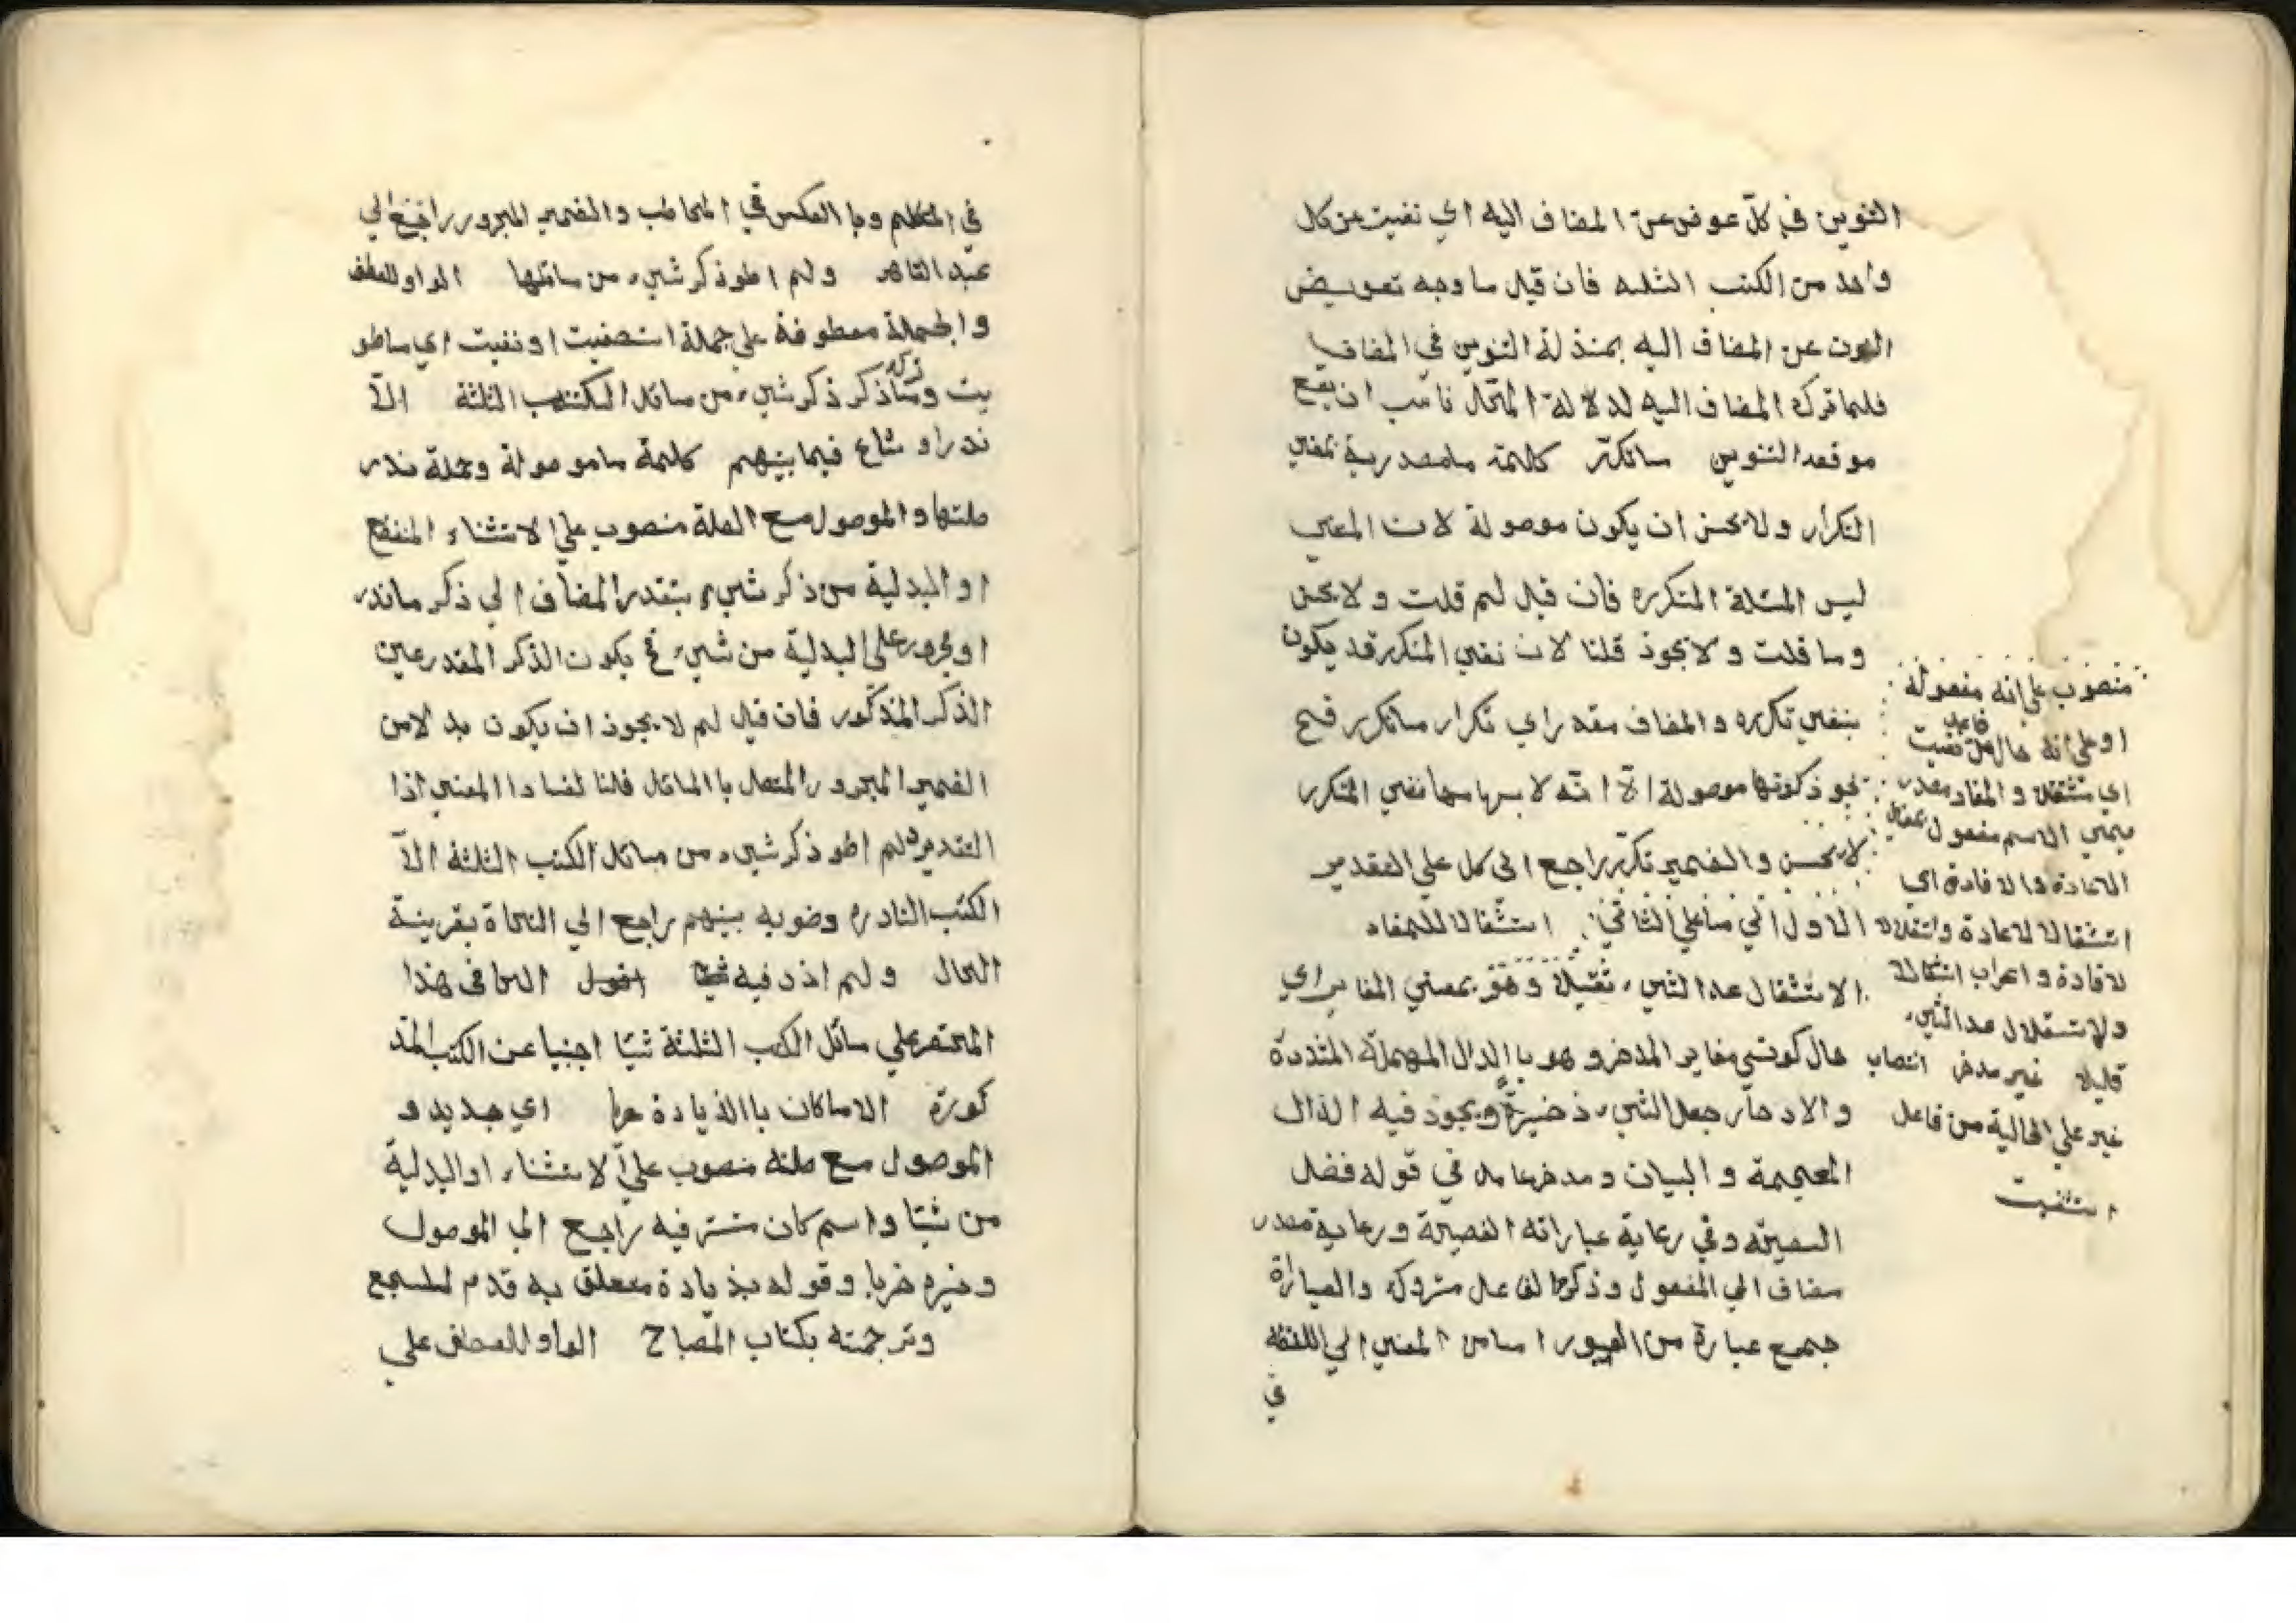 التنوين في كلّ عوض عن المضاف اليه اي نفيت عن كل
واحد من الكتب الثلثه فان قيل ما وجه تعويض
عن المضاف اليه بمنذلة التنوين في المضاف
فلما ترك المضاف اليه لدلالة ان يقع
موقعه التنوين ماتكرّر كلمة ما مصدرية نفي
التكرار ولا يحسن ان يكون موصولة لان المعني
ليس المسئلة المتكرره فان قيل لم قلت ولا يحسن
وما قلت ولا يجوذ قلنا لان نفي المتكرر قد يكون
بنفي تكرره والمضاف مقدر اي تكرار ماتكرر
كونها موصولة الّا انّه نفي المتكرر
لا يحسن والضمير تكرّر راجع الى كل علي التقدير
الاول علي الثاني استثقالا للمفاد
الاستثقال عدا الشيء ثقيلا وهو بمعني المفا اي
حال كوني مغاير المدخر وهو باالدال المهملة المشددة
والادخار جعل الشيء ذخيرة ويجوذ فيه الذال
المعجمة والبيان في قوله فضل
وفي رعاية عباراته الفصيحة ورعاية مصدر
مضاف الي المفعول وذكر الفاعل متروك والعبارة
جمع عبارة من العبور المعني الي اللفظ
في
منصوب علي انه مفعوله
او علي انه حال من فاعل نفيت
اي مستثقلا والمفاد مصدر
ميمي الاسم مفعول
الاعادة والافادة اي
استثقالا لاعادة
لافادة واعراب استثقالا
والاستقلال عد الشيء
قليلا غير مدخر انتصاب
غير علي الحالية من فاعل
استصفيت
في المتكلم وباالعكس في المخاطب والضمير المجرور راجع الي
عبد القاهر ولم اطو ذكر شيء من سائلها الواو للعطف
والجملة معطوفة علي جملة استصفيت او نفيت اي ماطو
يت وما ذكر ذكر شيء من مسائل الكتب الثلثة الّا
ندر او شاع فيما بينهم كلمة ما موصولة وجملة ندر
صلتها والموصول مع الصلة منصوب علي الاستثناء المنقطع
او البدلية من ذكر شيء بتقدر المضاف الي ذكر ماندر
او مجرور علي البدلية من شيء فح يكون الذكر المقدر عين
الذكر المذكور فان قيل لم لا يجوذ ان يكون بدلا من
الضمير المجرور المتصل باالمسائل قلنا لفساد المعني اذا
التقدير ولم اطو ذكر شيء من مسائل الكتب الثلثة الّا
الكتب النادره بينهم راجع الي النحاة بقرينة
الحال ولم اذد فيه هذا
المختصر علي مسائل الكتب الثلثة شيئا اجنبيا عن الكتب المذ
كورة الا ماكان باالذيادة حريا اي جديد و
الموصول مع صلته منصوب علي الاستثناء او البدلية
من شيئا واسم كان مستتر فيه راجع الي الموصول
وخبره حريا وقوله بذيادة متعلق به قدم للسجع
وترجمته بكتاب المصباح الواو للعطف علي